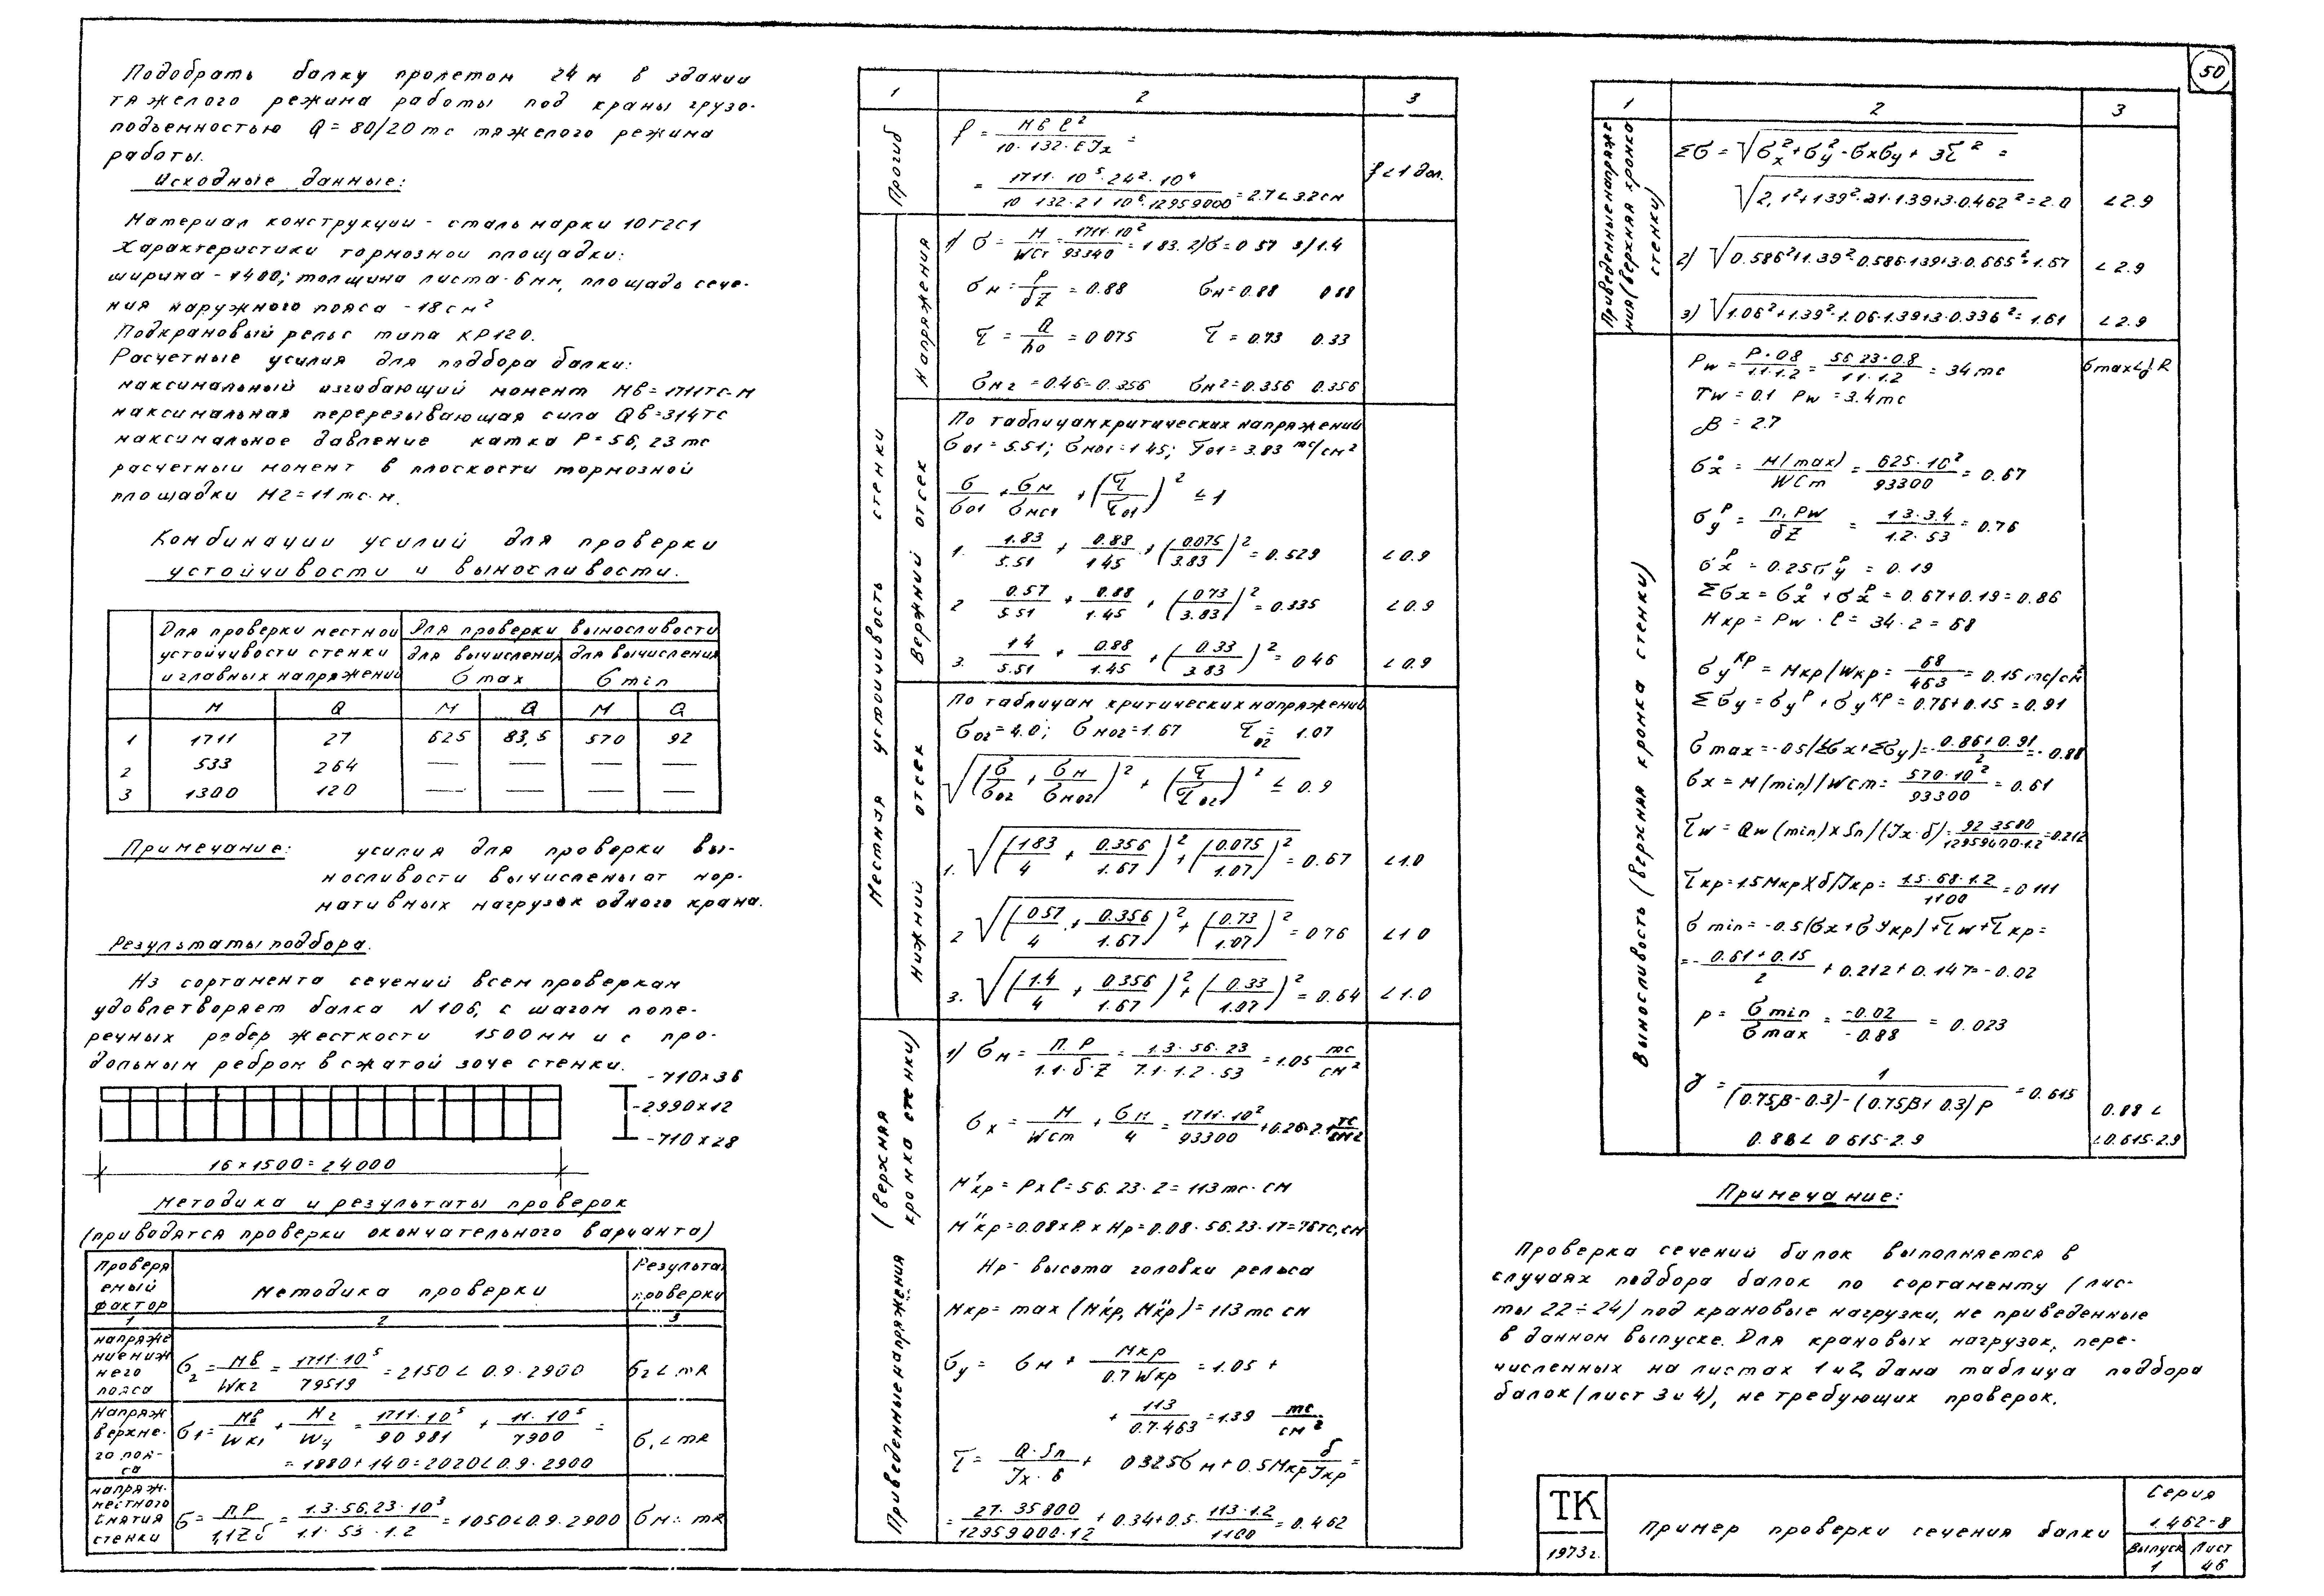 50
Подобрать балку пролетом 24 м в здании
тяжелого режима работы под краны грузо-
подъемностью Q = 80/20 тс тяжелого режима
работы.
Исходные данные:
Материал конструкции - сталь марки 10Г2С1
Характеристики тормозной площадки:
ширина - 1400; толщина листа - 6 мм, площадь сече-
ния наружного пояса - 18 см²
Подкрановый рельс типа КР120.
Расчетные усилия для подбора балки:
максимальный изгибающий момент Мв = 1711 тс·м
максимальная перерезывающая сила Qв = 314 тс
максимальное давление катка Р = 56,23 тс
расчетный момент в плоскости тормозной
площадки Мг = 11 тс·м.
Комбинации усилий для проверки
устойчивости и выносливости.
Для проверки местной устойчивости стенки и главных напряжений
Для проверки выносливости
для вычисления σ max
для вычисления σ min
M Q M Q M Q
1 1711 27 625 83,5 570 92
2 533 264 — — — —
3 1300 120 — — — —
Примечание: усилия для проверки вы-
носливости вычислены от нор-
мативных нагрузок одного крана.
Результаты подбора.
Из сортамента сечений всем проверкам
удовлетворяет балка N 106, с шагом попе-
речных ребер жесткости 1500 мм и с про-
дольным ребром в сжатой зоне стенки.
- 710×36
- 2990×12
- 710×28
16 × 1500 = 24000
Методика и результаты проверок
(приводятся проверки окончательного варианта)
Проверяемый фактор
Методика проверки
Результат проверки
1 2 3
напряжение нижнего пояса
σ₂ = Мв/Wк2 = 1711·10⁵/79519 = 2150 < 0.9·2900
σ₂ < mR
Напряж верхнего пояса
σ1 = Мв/Wк1 + Мг/Wy = 1711·10⁵/90981 + 11·10⁵/7900 =
= 1880 + 140 = 2020 < 0.9·2900
σ₁ < mR
напряж. местного смятия стенки
σ = п.Р/1,1Zδ = 1.3·56,23·10³/1.1·53·1.2 = 1050 < 0.9·2900
σм < mR
1 2 3
Прогиб
f = Мв ℓ²/10·132·EJx =
= 1711·10⁵·24²·10⁴/10·132·2.1·10⁶·12959000 = 2.7 < 3.2 см
f < 1 доп.
Местная устойчивость стенки
Напряжения
1) σ = М/Wст = 1711·10²/93340 = 1.83. 2) σ = 0.57 3) 1.4
σм = P/δZ = 0.88 σм = 0.88 0.88
τ = Q/hо = 0.075 τ = 0.73 0.33
σм2 = 0.4σ = 0.356 σм2 = 0.356 0.356
Верхний отсек
По таблицам критических напряжений
σ01 = 5.51; σм01 = 1.45; τ01 = 3.83 тс/см²
σ/σ01 + σм/σм01 + (τ/τ01)² ≤ 1
1. 1.83/5.51 + 0.88/1.45 + (0.075/3.83)² = 0.529 < 0.9
2 0.57/5.51 + 0.88/1.45 + (0.73/3.83)² = 0.335 < 0.9
3. 1.4/5.51 + 0.88/1.45 + (0.33/3.83)² = 0.46 < 0.9
Нижний отсек
По таблицам критических напряжений
σ02 = 4.0; σм02 = 1.67 τ02 = 1.07
√(σ/σ02 + σм/σм02)² + (τ/τ02)² ≤ 0.9
1. √(1.83/4 + 0.356/1.67)² + (0.075/1.07)² = 0.67 < 1.0
2 √(0.57/4 + 0.356/1.67)² + (0.73/1.07)² = 0.76 < 1.0
3. √(1.4/4 + 0.356/1.67)² + (0.33/1.07)² = 0.64 < 1.0
Приведенные напряжения (верхняя кромка стенки)
1) σм = п.Р/1.1·δ·Z = 1.3·56.23/1.1·1.2·53 = 1.05 тс/см²
σx = М/Wст + σм/4 = 1711·10²/93300 + 0.26 = 2.1 тс/см²
М'кр = Р×ℓ = 56.23·2 = 113 тс·см
М''кр = 0.08×Р×Нр = 0.08·56.23·17 = 76 тс,см
Нр - высота головки рельса
Мкр = max (М'кр, М''кр) = 113 тс см
σу = σм + Мкр/0.7Wкр = 1.05 +
+ 113/0.7·463 = 1.39 тс/см²
τ = Q·Sп/Jx·δ + 0.325σм + 0.5Мкр δ/Jкр =
= 27·35800/12959000·12 + 0.34 + 0.5·113·1.2/1100 = 0.462
1 2 3
Приведенные напряжения (верхняя кромка стенки)
Σσ = √σx² + σу² - σxσу + 3τ² =
√2,1² + 1.39² - 2.1·1.39 + 3·0.462² = 2.0 < 2.9
2) √0.586² + 1.39² - 0.586·1.39 + 3·0.665² = 1.67 < 2.9
3) √1.06² + 1.39² - 1.06·1.39 + 3·0.336² = 1.61 < 2.9
Выносливость (верхняя кромка стенки)
Рw = Р·0.8/1.1·1.2 = 56.23·0.8/1.1·1.2 = 34 тс
Tw = 0.1 Рw = 3.4 тс
β = 2.7
σx° = М(max)/Wст = 625·10²/93300 = 0.67
σуᵖ = п₁Рw/δZ = 1.3·3.4/1.2·53 = 0.76
σxᵖ = 0.25σуᵖ = 0.19
Σσx = σx° + σxᵖ = 0.67 + 0.19 = 0.86
Мкр = Рw·ℓ = 34·2 = 68
σу кр = Мкр/Wкр = 68/463 = 0.15 тс/см²
Σσу = σуᵖ + σу кр = 0.76 + 0.15 = 0.91
σmax = -0.5(Σσx + Σσу) = -0.86 + 0.91/2 = -0.88
σx = М(min)/Wст = 570·10²/93300 = 0.61
τw = Qw(min)×Sп/(Jx·δ) = 92·3580/12959000·1.2 = 0.212
τкр = 1.5Мкр×δ/Jкр = 1.5·68·1.2/1100 = 0.111
σmin = -0.5(σx + σукр) + τw + τкр =
= -0.61 + 0.15/2 + 0.212 + 0.147 = -0.02
ρ = σmin/σmax = -0.02/-0.88 = 0.023
γ = 1/(0.75β - 0.3) - (0.75β + 0.3)ρ = 0.615
0.88 < 0.615·2.9
0.88 <
< 0.615·2.9
Примечание:
Проверка сечений балок выполняется в
случаях подбора балок по сортаменту (лис-
ты 22÷24) под крановые нагрузки, не приведенные
в данном выпуске. Для крановых нагрузок, пере-
численных на листах 1 и 2, дана таблица подбора
балок (лист 3 и 4), не требующих проверок.
ТК
1973 г.
Пример проверки сечения балки
Серия
1.462-8
Выпуск
1
Лист
46